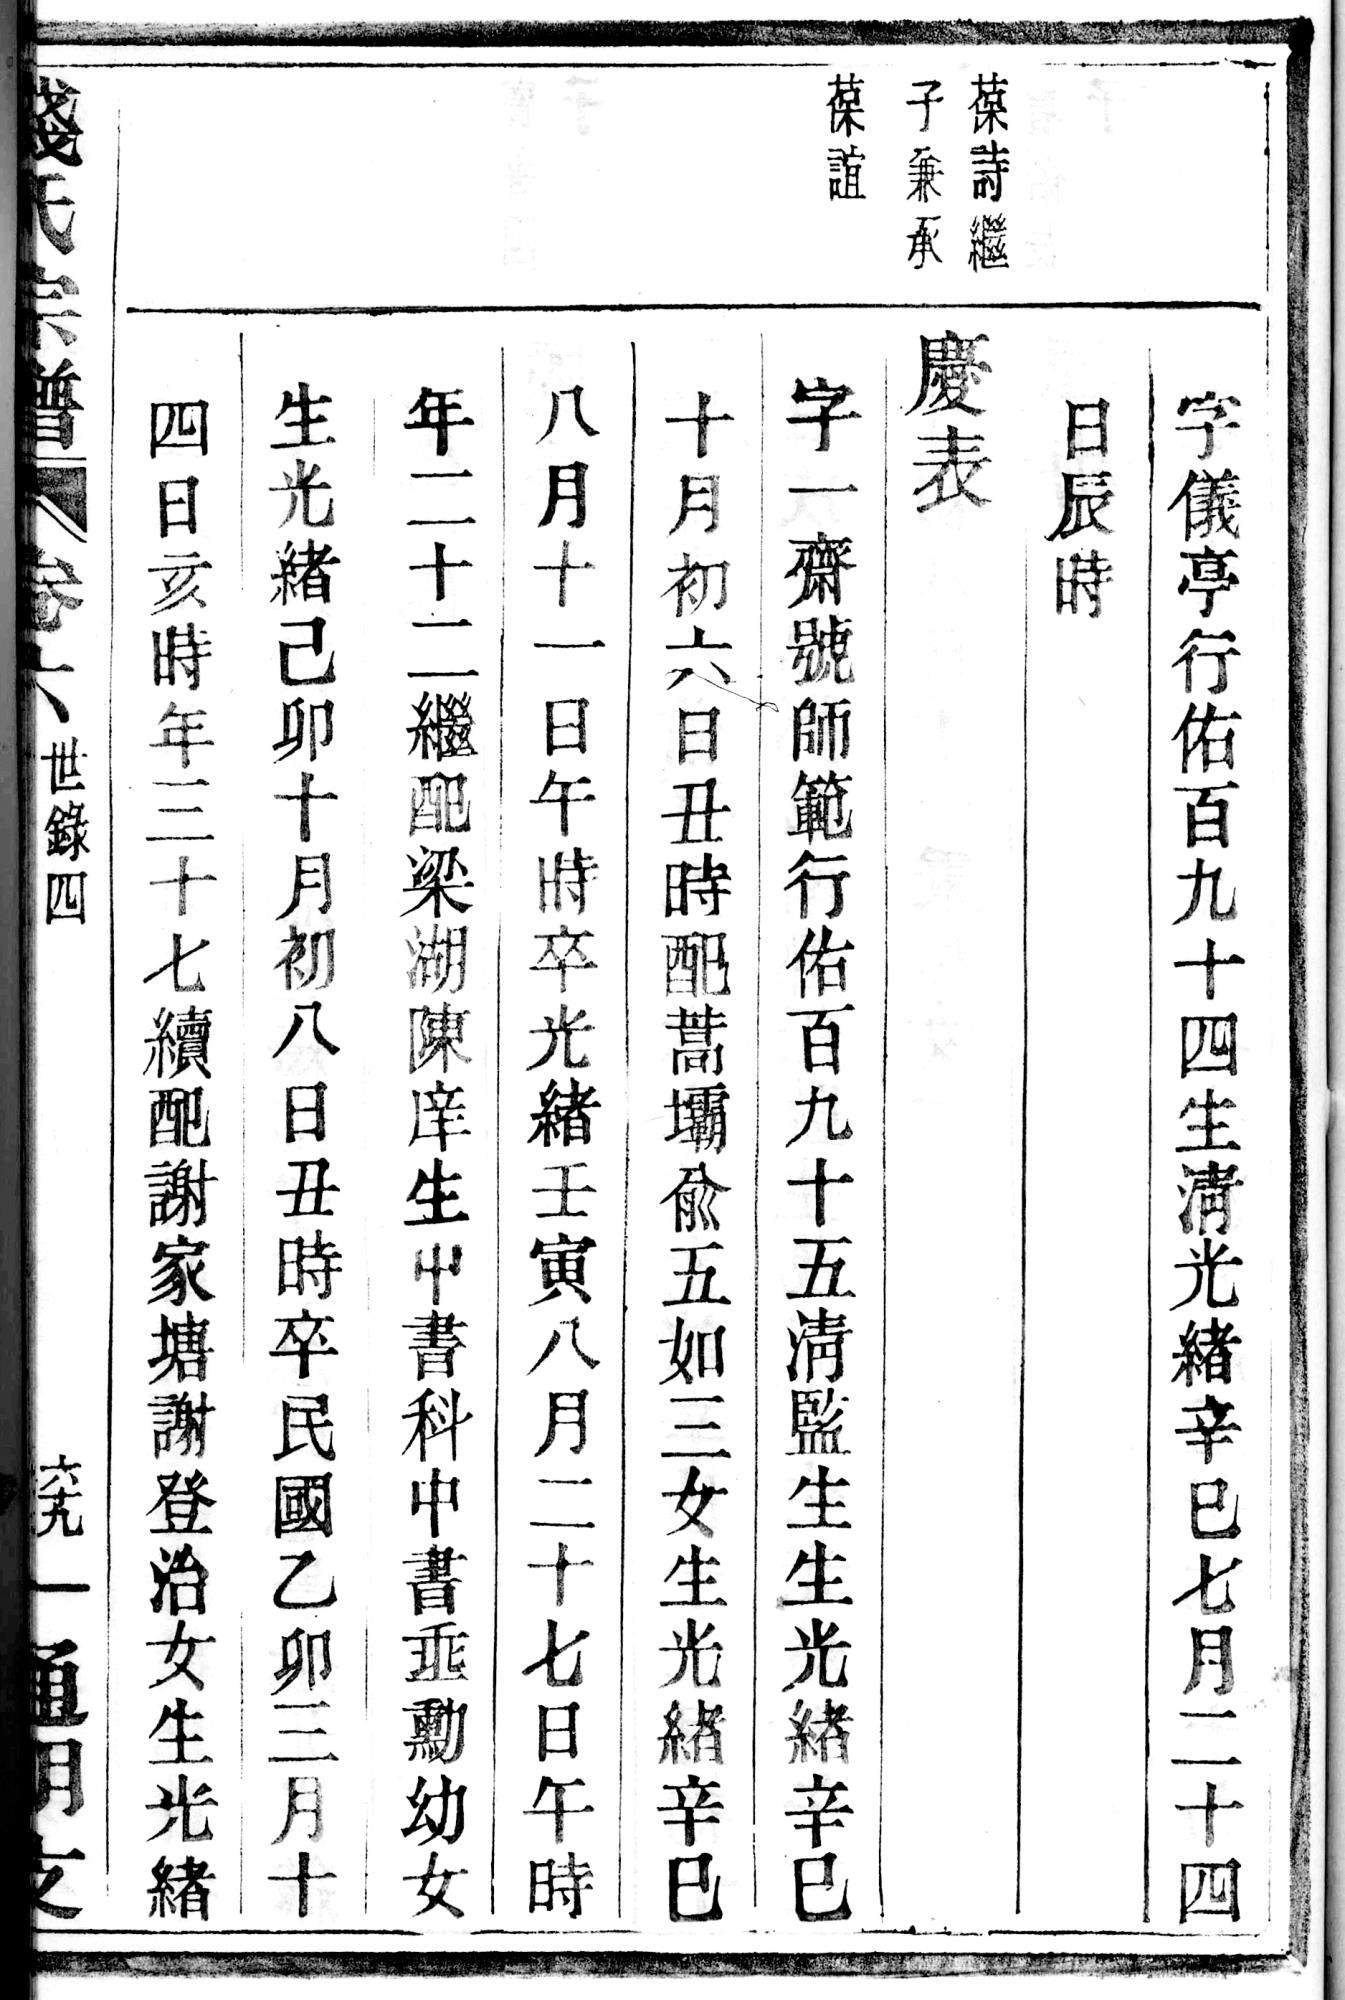 葆詩繼
子兼承
葆誼
字儀亭行佑百九十四生淸光緒辛巳七月二十四
日辰時
慶表
字一齋號師範行佑百九十五淸監生生光緒辛巳
十月初六日丑時配蒿壩俞五如三女生光緒辛巳
八月十一日午時卒光緒壬寅八月二十七日午時
年二十二繼配梁湖陳庠生中書科中書亜勳幼女
生光緒己卯十月初八日丑時卒民國乙卯三月十
四日亥時年三十七續配謝家塘謝登治女生光緒
錢氏宗譜
卷六
世錄四
六十九
一
通明支